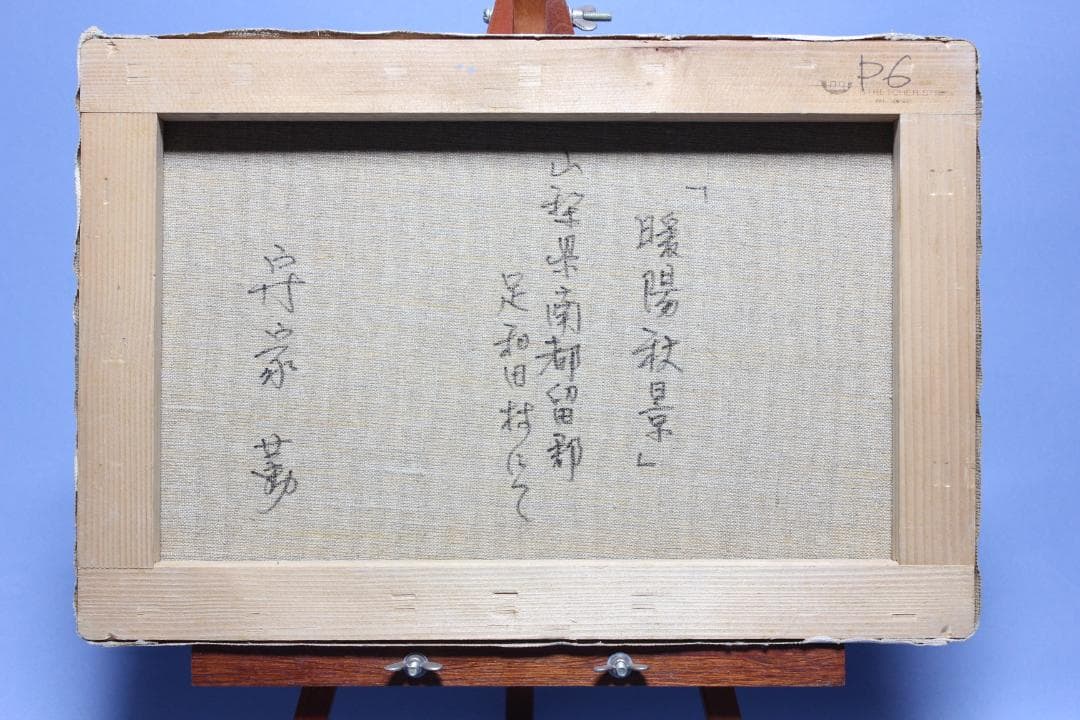 P6
「暖陽秋景」
山梨県南都留郡
足和田村にて
守家 勤